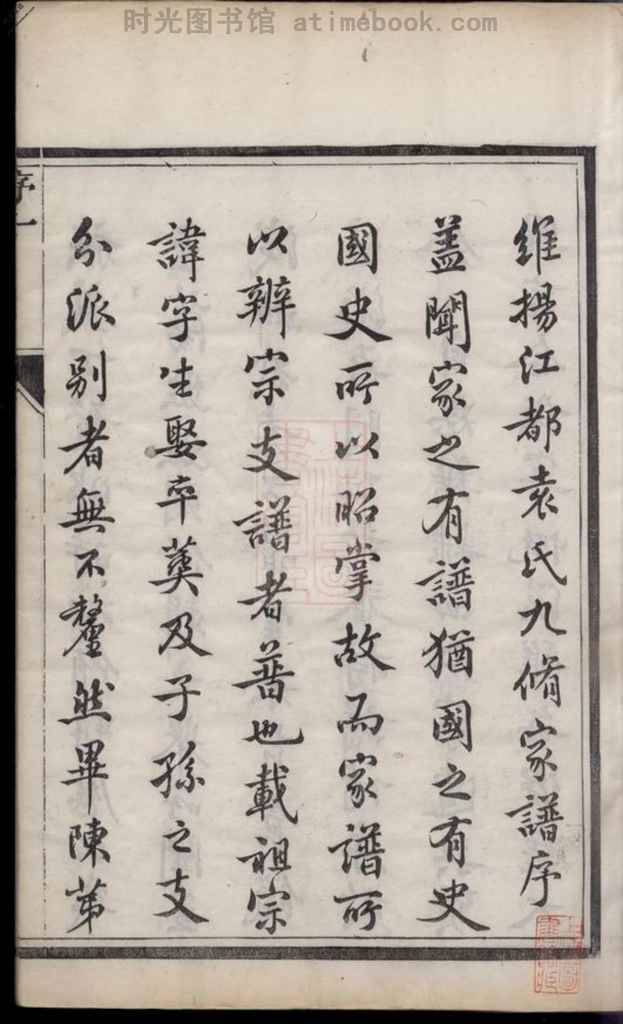 时光图书馆 atimebook.com
維揚江都袁氏九脩家譜序
盖聞家之有譜猶國之有史
國史所以昭掌故而家譜所
以辨宗支譜者普也載祖宗
諱字生娶卒葬及子孫之支
分派别者無不釐然畢陳苐
序一